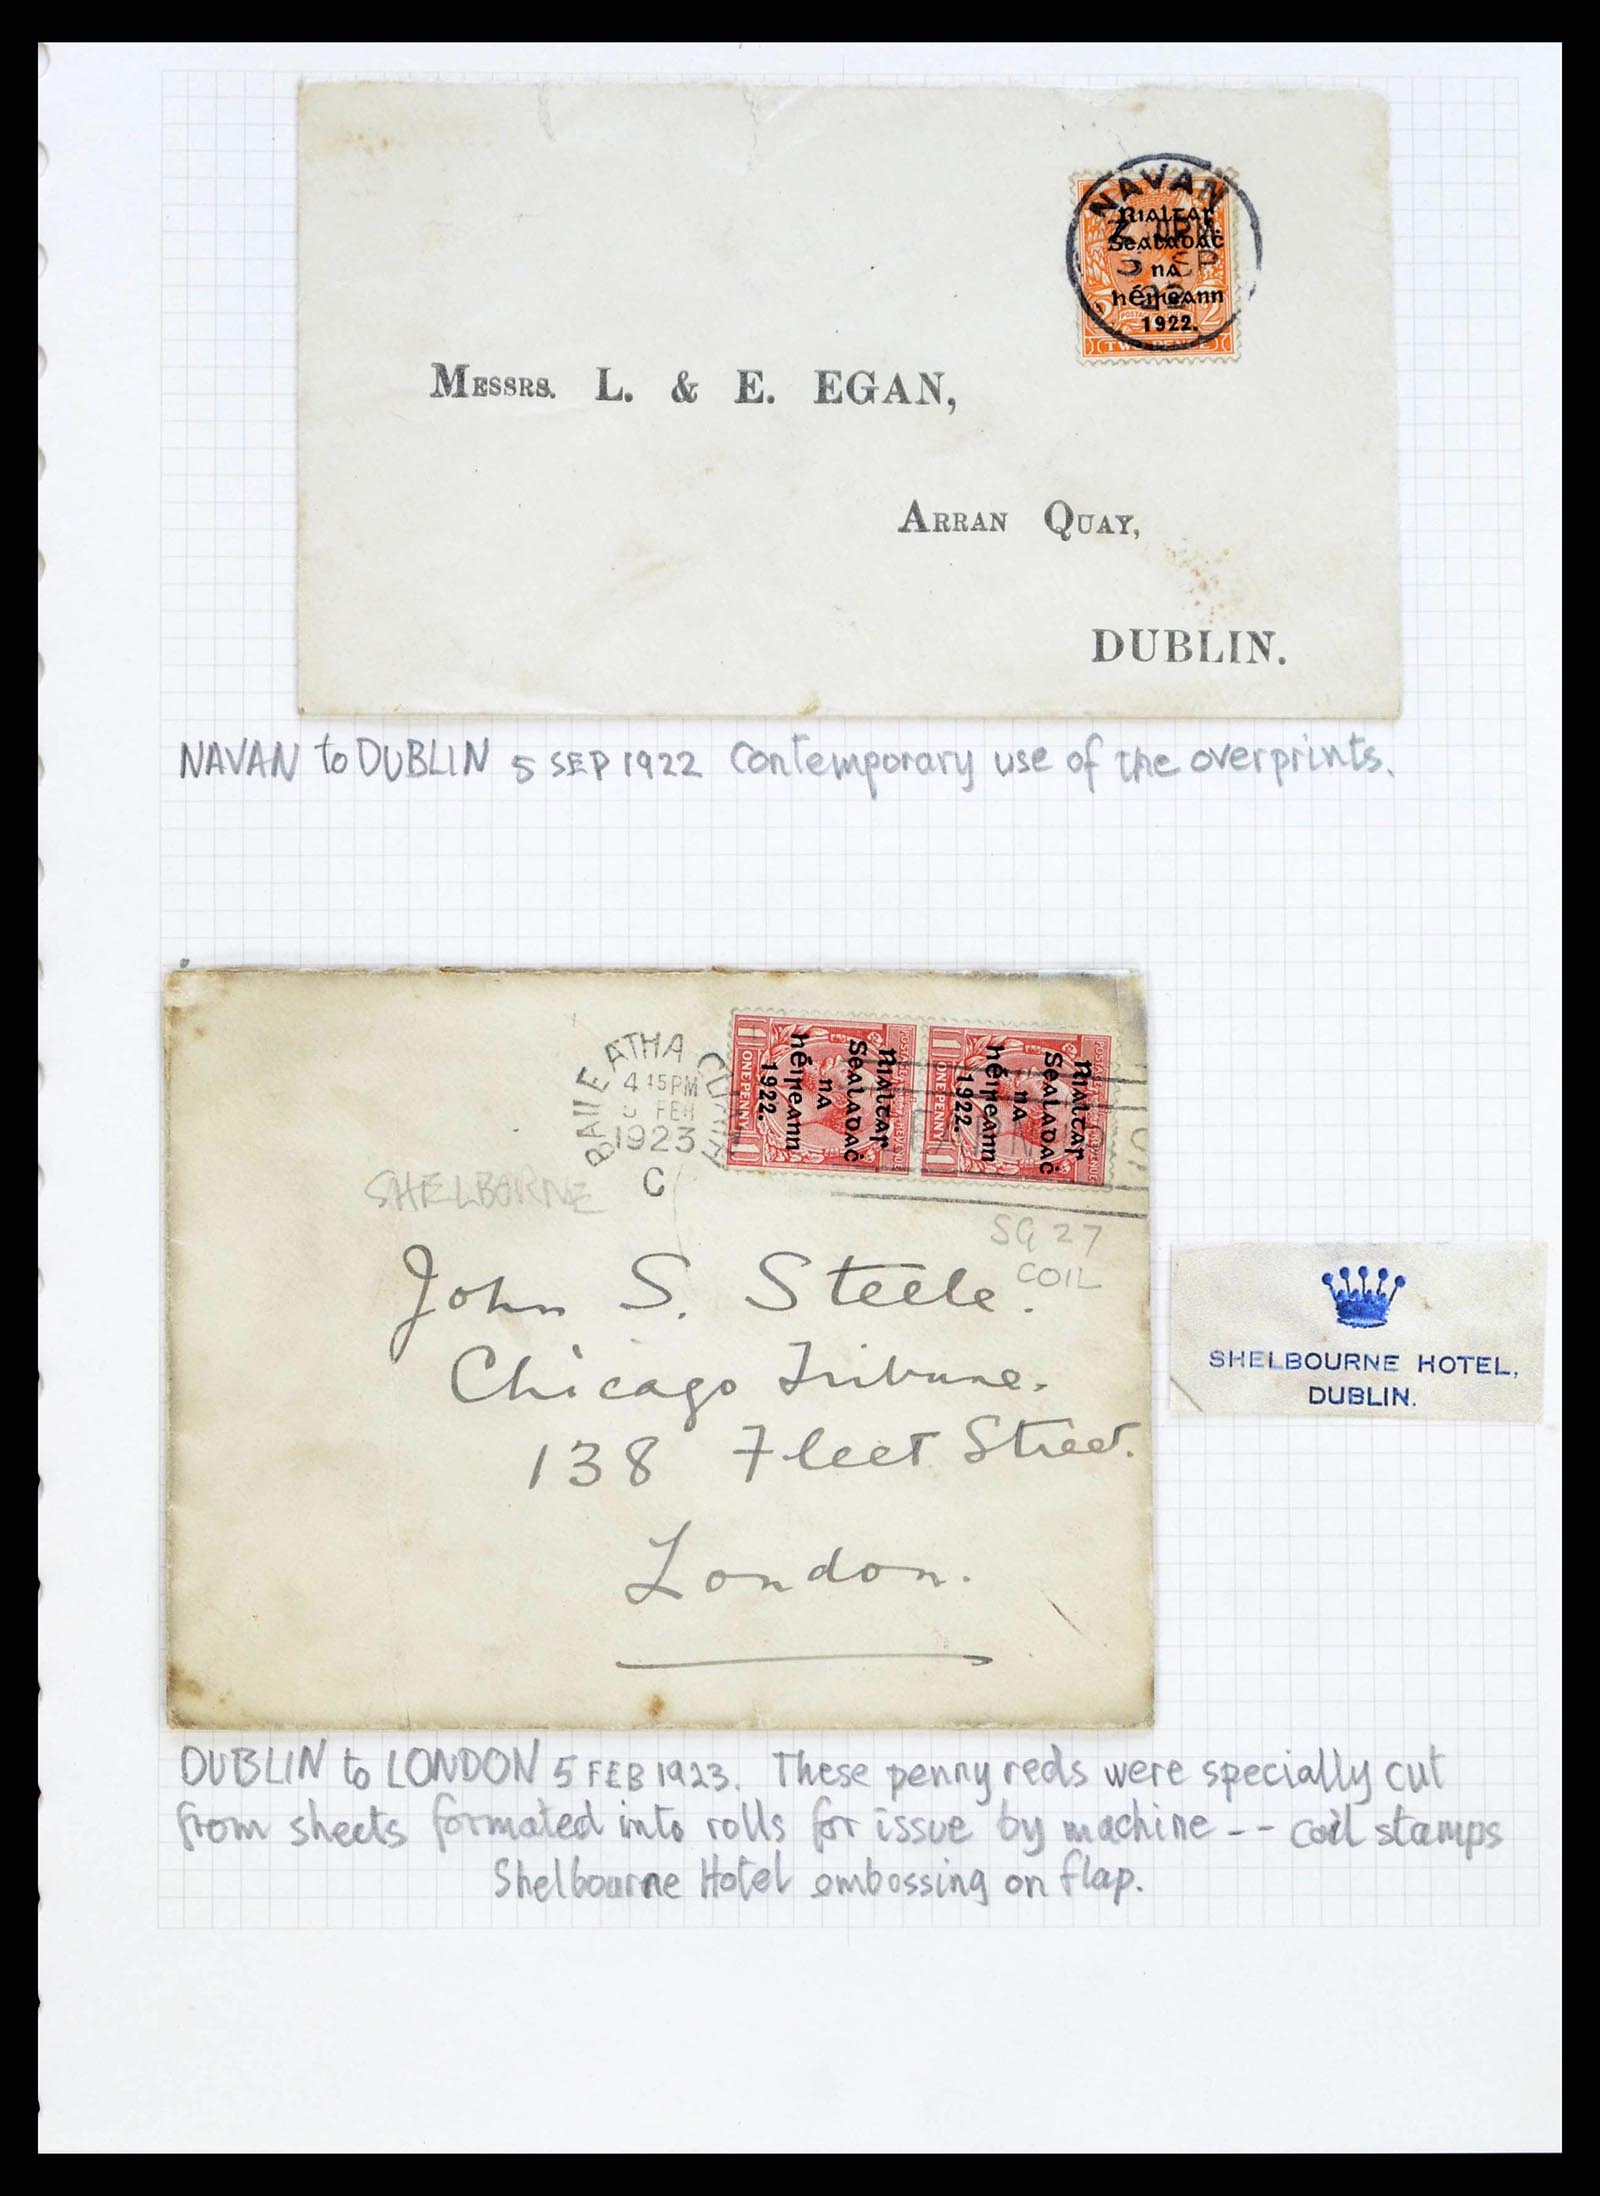 NAVAN
Rialtar
Sealadaċ
na
hÉireann
1922.
TWO PENCE
MESSRS. L. & E. EGAN,
ARRAN QUAY,
DUBLIN.
NAVAN to DUBLIN 5 SEP 1922 Contemporary use of the overprints.
BAILE ATHA CLIATH
4 15PM
FEB
1923
C
Rialtar
Sealadaċ
na
hÉireann
1922.
ONE PENNY
Rialtar
Sealadaċ
na
hÉireann
1922.
ONE PENNY
SHELBORNE
SG 27
COIL
John S. Steele.
Chicago Tribune.
138 Fleet Street.
London.
SHELBOURNE HOTEL,
DUBLIN.
DUBLIN to LONDON 5 FEB 1923. These penny reds were specially cut
from sheets formated into rolls for issue by machine -- coil stamps
Shelbourne Hotel embossing on flap.